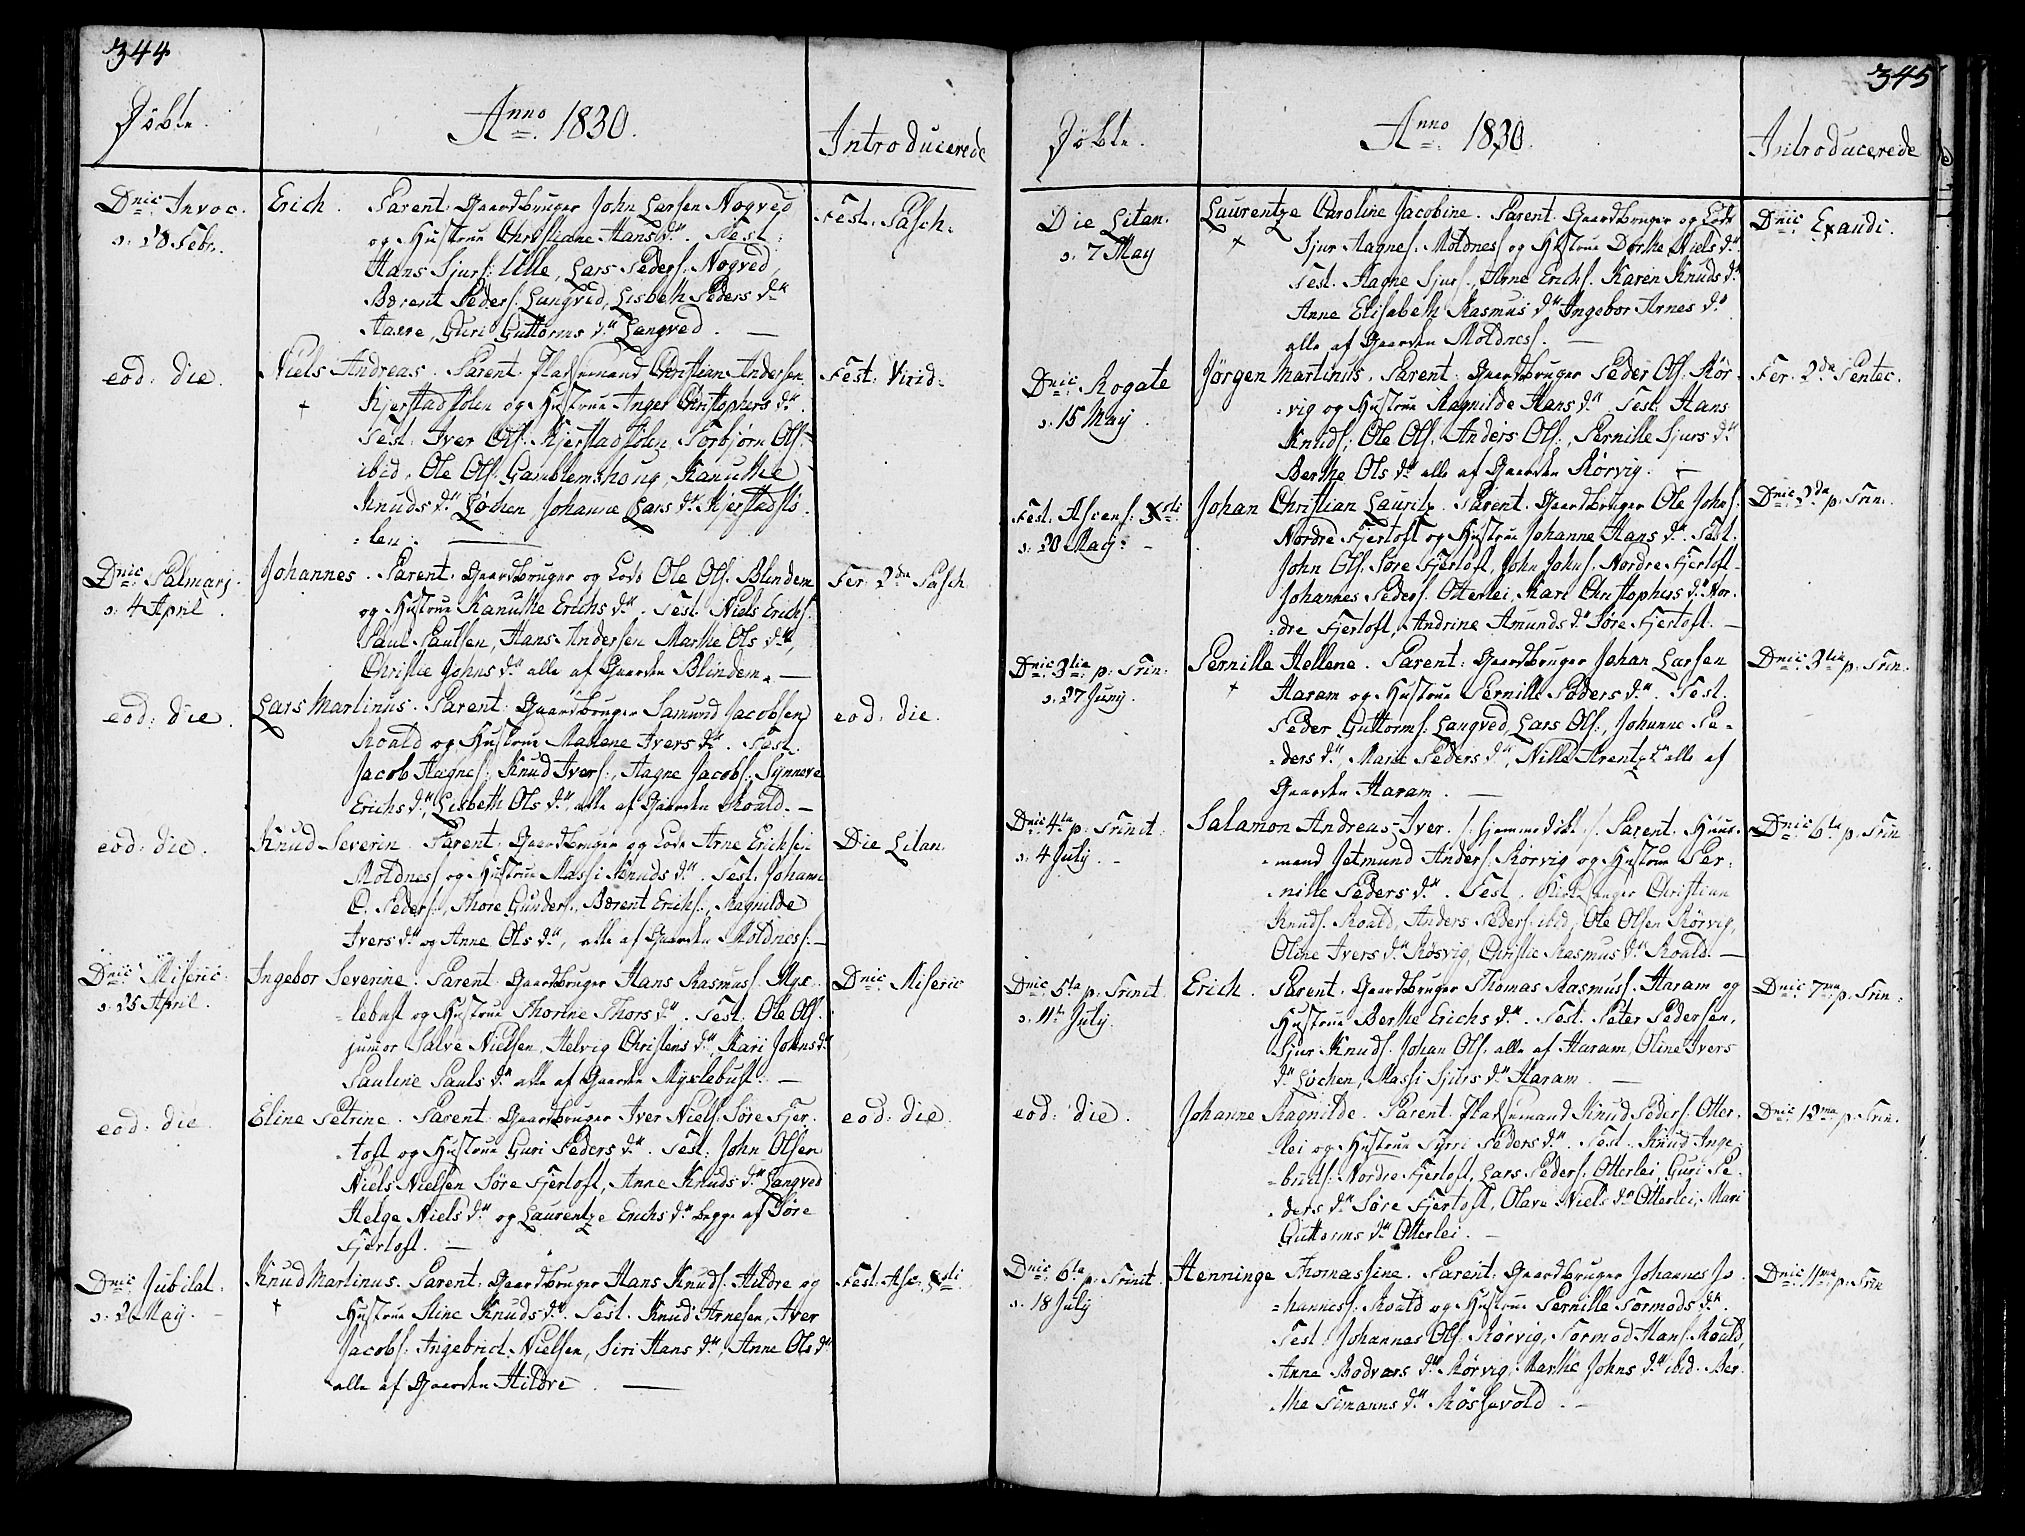 344
Døbte.
Anno 1830.
Introducerede
Dnic: Invoc.
d. 28 Febr.
Erich. Parent: Gaardbruger John Larsen Nogved
og Hustrue Christiane Hans dr. Test:
Hans Sjurs: Ulle, Lars Peders: Nogved,
Bærent Peders. Langved, Lisbeth Peders dr
Aasre, Guri Guttorms dr Langved. —
Fest: Pasch:
eod: die.
Niels Andreas. Parent: Pladsemand Christian Andersen
+
Kjerstadsølen og Hustrue Anger Christophers dr.
Test: Iver Ols. Kjerstadsølen, Torbjørn Ols:
ibid, Ole Ols. Gamblemshoug, Kanuthe
Knuds dr Løchen, Johanne Lars dr Kjerstadsø-
-len. —
Fest: Virid:
Dnic: Palmarj.
d. 4 April.
Johannes. Parent: Gaardbruger og Lods Ole Ols. Blindem
og Hustrue Kanuthe Erichs dr. Test: Niels Erichs.
Paul Paulsen, Hans Andersen Marthe Ols dr,
Christie Johns dr alle af Gaarden Blindem. —
Fer: 2da Pasch
eod: die.
Lars Martinus. Parent: Gaardbruger Samund Jacobsen
Roald og Hustrue Malene Ivers dr. Test:
Jacob Aagnes: Knud Ivers:, Aagne Jacobs. Synneve
Erichs dr, Lisbeth Ols dr, alle af Gaarden Roald. —
eod: die.
eod: die.
Knud Severin. Parent: Gaardbruger og Lods Arne Erichsen
Moldness og Hustrue Massi Knuds dr. Test. Johan
C. Peders:, Thore Gunders., Bærent Erichs:, Ragnilde
Ivers dr og Anne Ols dr, alle af Gaarden Moldness: —
Die Litan.
Dnic: Miseric:
d. 25 April.
Ingebor Severine. Parent: Gaardbruger Hans Rasmuss. Myx
-lebust og Hustrue Thorine Thors dr. Test: Ole Ols.
junior Salve Nielsen, Helvig Christens dr, Kari Johns dr
Pauline Pauls dr alle af Gaarden Myxlebust. —
Dnic: Miseric
eod: die.
Eline Petrine. Parent: Gaardbruger Iver Niels. Søre Fjer-
-toft og Hustrue Guri Peders dr. Test: John Olsen
Niels Nielsen Søre Fjertoft, Anne Knuds dr Langved
Helge Niels dr og Laurentze Erichs dr begge af Søre
Fjertoft. —
eod: die.
Dnic: Jubilat:
d. 2 May. —
Knud Martinus. Parent: Gaardbruger Hans Knuds. Hildre og
+
Hustrue Eline Knuds dr. Test. Knud Arnesen, Iver
Jacobs: Angebrict Nielsen, Siri Hans dr, Anne Ols dr
alle af Gaarden Hildre. —
Fest: Asc: Xsti.
345
Døbte.
Anno 1830.
Introducerede
Die Litan.
d. 7 May
Laurentze Caroline Jacobine. Parent: Gaardbruger og Lods
+
Sjur Aagnes. Moldness og Hustrue Dorthe Niels dr.
Test. Aagne Sjurs., Arne Erichs. Karen Knuds dr
Anne Elisabeth Rasmus dr Ingebor Arnes dr.
alle af Gaarden Moldness. —
Dnic: Exaudi.
Dnic: Rogate
d. 15 May.
Jørgen Martinus. Parent: Gaardbruger Peder Ols. Rør-
-vig og Hustrue Ragnilde Hans dr. Test: Hans
Knuds:, Ole Ols. Anders Ols:, Pernille Sjurs dr
Berthe Ols dr alle af Gaarden Rørvig. —
Fer: 2da Pentec.
Fest: Ascens: Xsti
d. 20 May: —
Johan Christian Lauritz. Parent. Gaardbruger Ole Johs:
Nordre Fjertoft og Hustrue Johanne Hans dr. Test:
John Ols. Søre Fjertoft, John Johns. Nordre Fjertoft
Johannes Peders. Otterlei, Kari Christophers dr Nor-
-dre Fjertoft, Andrine Amunds dr Søre Fjertoft. —
Dnic: 2da p. Trin.
Dnic: 3tia p: Trin.
d. 27 Junj.
Pernille Hellene. Parent: Gaardbruger Johan Larsen
+
Haram og Hustrue Pernille Peders dr. Test.
Peder Guttorms: Langved, Lars Ols:, Johanne Pe-
-ders dr, Marie Peders dr, Nille Arentz dr alle af
Gaarden Haram. —
Dnic: 3tia p: Trin.
Dnic: 4ta p: Trinit:
d. 4 July. —
Salamon Andreas Iver. /: hjemmedøbt :/. Parent. Huus-
-mand Jetmund Anders. Rørvig og Hustrue Per-
-nille Peders dr. Test. Kirkesanger Christian
Knuds. Roald, Anders Peders. ibid, Ole Olsen Rørvig,
Oline Ivers dr Rørvig, Christie Rasmus dr Roald. —
Dnic: 6ta p: Trin
Dnic: 5ta p: Trinit.
d. 11te July.
Erich. Parent. Gaardbruger Thomas Rasmuss. Haram og
Hustrue Berthe Erichs dr. Test: Peter Pedersen,
Sjur Knuds. Johan Ols. alle af Haram, Oline Ivers
dr Løchen, Massi Sjurs dr Haram. —
Dnic: 7ma p: Trin:
eod: die.
Johanne Ragnilde. Parent: Pladsemand Knud Peders: Otter-
-lei og Hustrue Syrri Peders dr. Test. Knud Inge-
-brids. Nordre Fjertoft, Lars Peders. Otterlei, Guri Pe-
-ders dr Søre Fjertoft, Olave Niels dr Otterlei, Mari
Guttorms dr Otterlei. —
Dnic: 13ma p: Trin.
Dnic: 6ta p: Trinit.
d. 18 July
Henninge Thomassine. Parent: Gaardbruger Johannes Jo-
-hanness. Roald og Hustrue Pernille Tormods dr.
Test: Johannes Ols. Rørvig, Tormod Hans. Roald,
Anne Bodvars dr Rørvig, Marthe Johns dr ibid. Ber-
-the Timanns dr Røssevold. —
Dnic: 11ma p: Trin